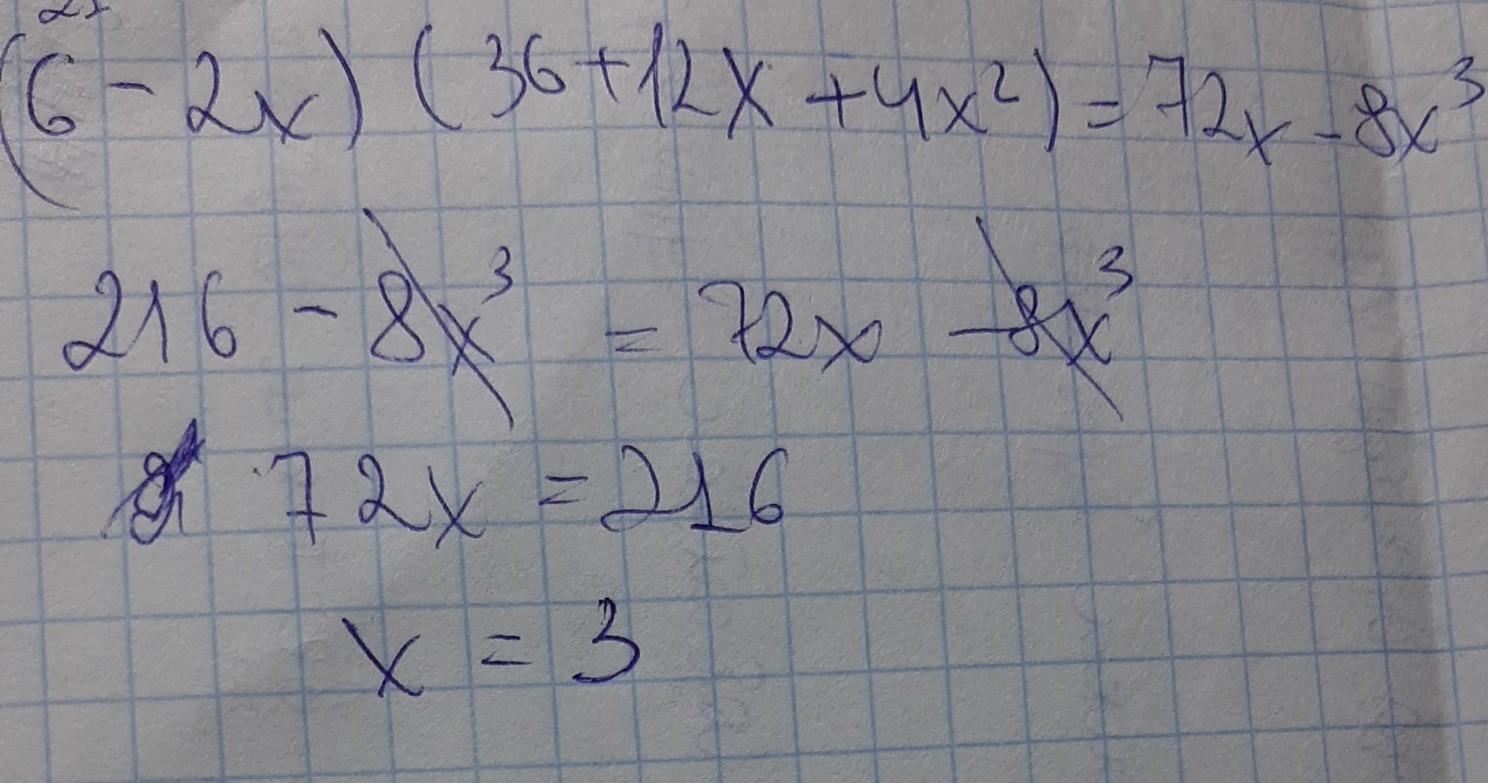 (6 - 2x) (36 + 12x + 4x²) = 72x - 8x³
216 - 8x³ = 72x - 8x³
72x = 216
x = 3